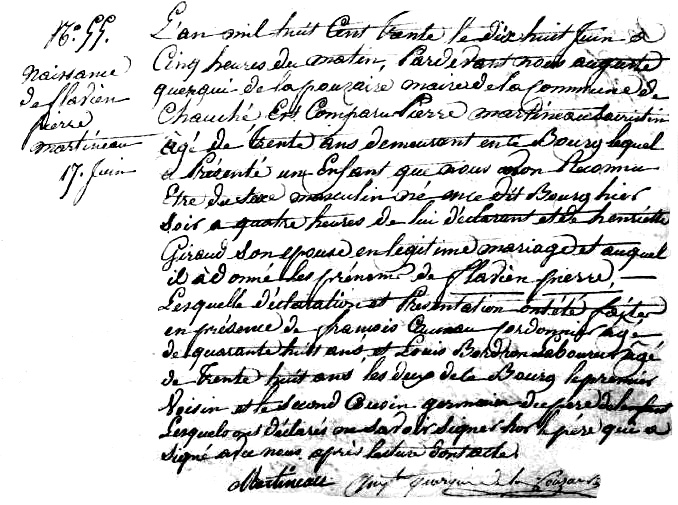 N.o 55.
Naissance
de fladien
pierre
martineau
17. Juin
L'an mil huit Cent Trente le dix huit Juin a
Cinq heures du matin, Pardevant nous auguste
querqui de la pouzaire maire de la Commune de
Chauché, Est Comparu Pierre martineau
âgé de Trente ans demeurant en ce Bourg lequel
a Présenté un Enfant que nous avon Reconnu
Etre du sexe masculin né a ce dit Bourg hier
soir a quatre heures de lui déclarant et de henriette
Giraud son epouse en legitime mariage et auquel
il à donné les prénom de fladien pierre, —
Lesquelle déclaration et Présentation ont été faites
en présence de françois Cordonnier âgé
de quarante huit ans, et Louis Bordron laboureur âgé
de Trente huit ans, les deux de le Bourg le premier
Voisin et le second Cousin germain du père de lenfant
Lesquels ont déclarés ne savoir signer hor le père qui a
signé avec nous après lecture dont acte.
Martineau querqui de la Pouzaire